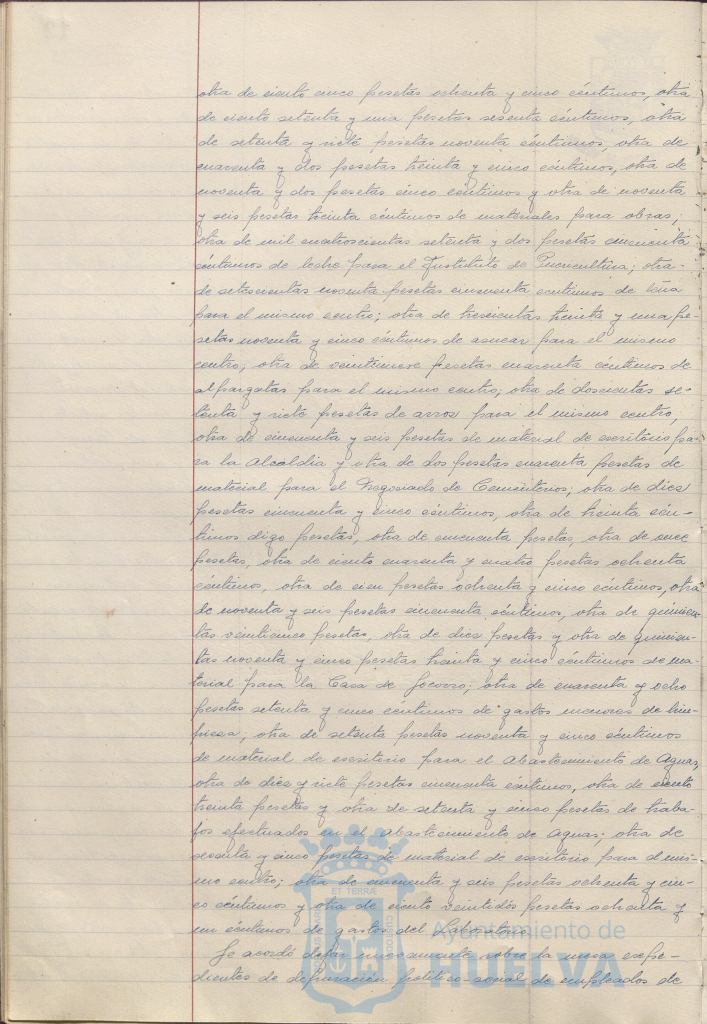 otra de ciento cinco pesetas ochenta y cinco céntimos, otra
de ciento setenta y una pesetas sesenta céntimos, otra
de setenta y siete pesetas noventa céntimos, otra de
cuarenta y dos pesetas treinta y cinco céntimos, otra de
noventa y dos pesetas cinco céntimos y otra de noventa
y seis pesetas treinta céntimos de materiales para obras;
otra de mil cuatroscientas setenta y dos pesetas cincuenta
céntimos de leche para el Instituto de Puericultura; otra
de setescientas noventa pesetas cincuenta céntimos de leña
para el mismo centro; otra de trescientas treinta y una pe-
setas noventa y cinco céntimos de azucar para el mismo
centro; otra de veintinueve pesetas cuarenta céntimos de
alpargatas para el mismo centro; otra de doscientas se-
tenta y siete pesetas de arroz para el mismo centro;
otra de cincuenta y seis pesetas de material de escritorio pa-
ra la Alcaldia y otra de dos pesetas cuarenta pesetas de
material para el Negociado de Cementerios; otra de diez
pesetas cincuenta y cinco céntimos, otra de treinta cén-
timos digo pesetas, otra de cincuenta pesetas, otra de once
pesetas, otra de ciento cuarenta y cuatro pesetas ochenta
céntimos, otra de cien pesetas ochenta y cinco céntimos, otra
de noventa y seis pesetas cincuenta céntimos, otra de quinien-
tas veinticinco pesetas, otra de diez pesetas y otra de quinien-
tas noventa y cinco pesetas treinta y cinco céntimos de ma-
terial para la Casa de Socorro; otra de cuarenta y ocho
pesetas setenta y cinco céntimos de gastos menores de lim-
pieza; otra de setenta pesetas noventa y cinco céntimos
de material de escritorio para el Abastecimiento de Aguas,
otra de diez y siete pesetas cincuenta céntimos, otra de ciento
treinta pesetas y otra de setenta y cinco pesetas de traba-
jos efectuados en el Abastecimiento de Aguas; otra de
sesenta y cinco pesetas de material de escritorio para el mis-
mo centro; otra de cincuenta y seis pesetas ochenta y cin-
co céntimos y otra de ciento veintidós pesetas ochenta y
un céntimos de gastos del Laboratorio.
Se acordó dejar nuevamente sobre la mesa expe-
dientes de depuración político-social de empleados de
ET TERRÆ
CUSTODIA
Ayuntamiento de
HUELVA